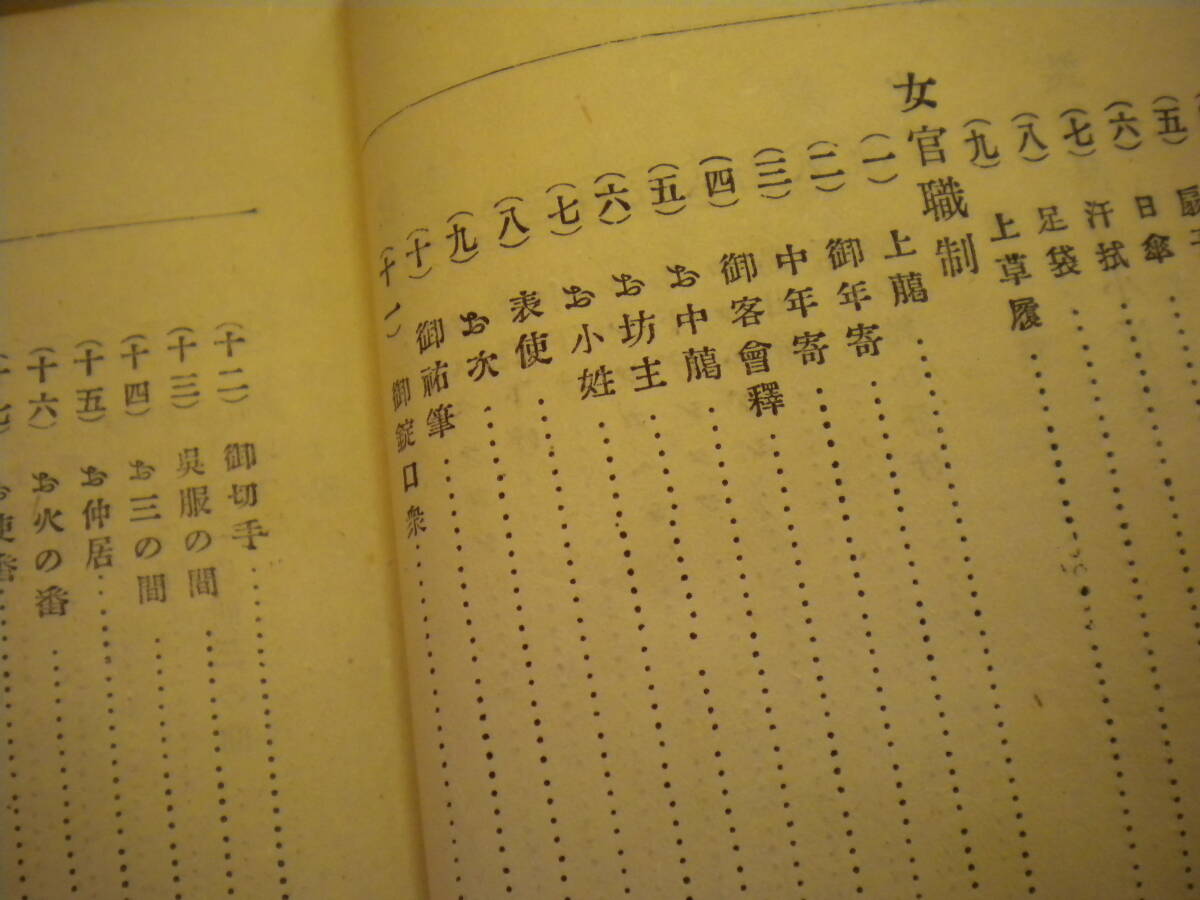 (五)
(六) 日傘
(七) 汗拭
(八) 足袋
(九) 上草履
女官職制
(一) 上﨟
(二) 御年寄
(三) 中年寄
(四) 御客會釋
(五) お中﨟
(六) お坊主
(七) お小姓
(八) 表使
(九) お次
(十) 御祐筆
(十一) 御錠口衆
(十二) 御切手
(十三) 呉服の間
(十四) お三の間
(十五) お仲居
(十六) お火の番
(十七) お使番